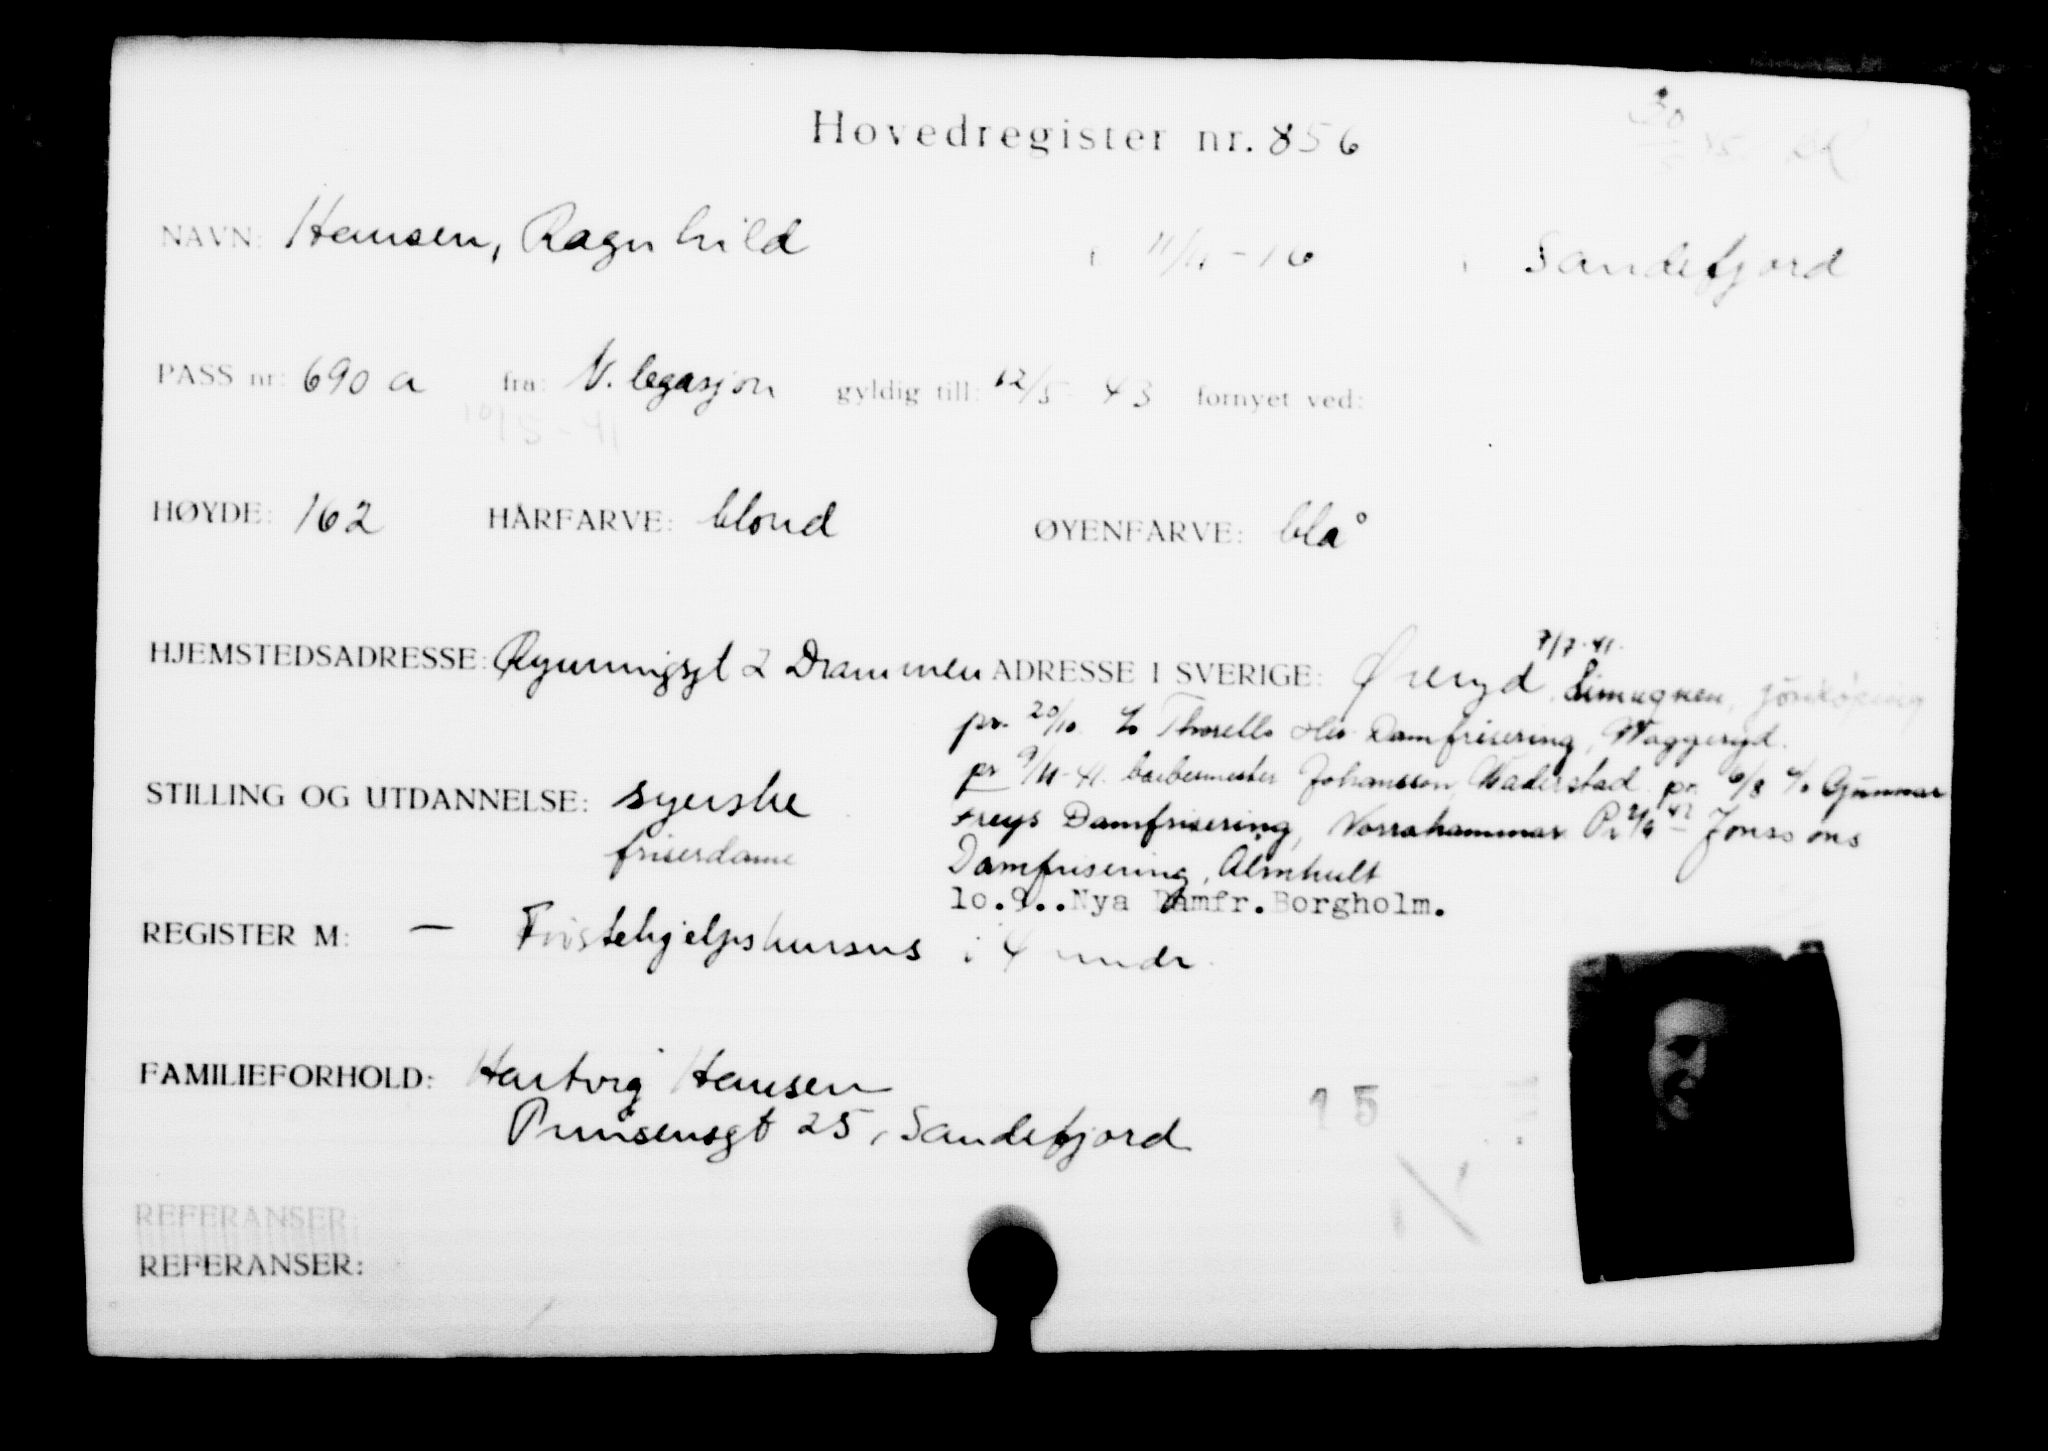 Hovedregister nr. 856
NAVN: Hansen, Ragnhild 11/11-16 Sandefjord
PASS nr: 690 a fra: N. legasjon gyldig till: 12/5-43 fornyet ved:
10/5-41
HØYDE: 162 HÅRFARVE: blond ØYENFARVE: blå
7/7-41.
HJEMSTEDSADRESSE: 2 Drammen ADRESSE I SVERIGE: Øreryd Limugnen, Jönköping
pr. 20/10 Thorells Damfrisering, Waggeryd.
pr 9/11-41. barbermester Johansson, Waderstad pr. 6/8 c/o Gunnar
STILLING OG UTDANNELSE: syerske
Freys Damfrisering, Norrahammar Pr 2/9 42 Jonssons
friserdame
Damfrisering, Almhult
10.9..Nya Damfr.Borgholm.
REGISTER M: — Fristehjelpskursus i 4 mndr.
FAMILIEFORHOLD: Hartvig Hansen
Prinsensgt 25, Sandefjord
15
REFERANSER:
REFERANSER: